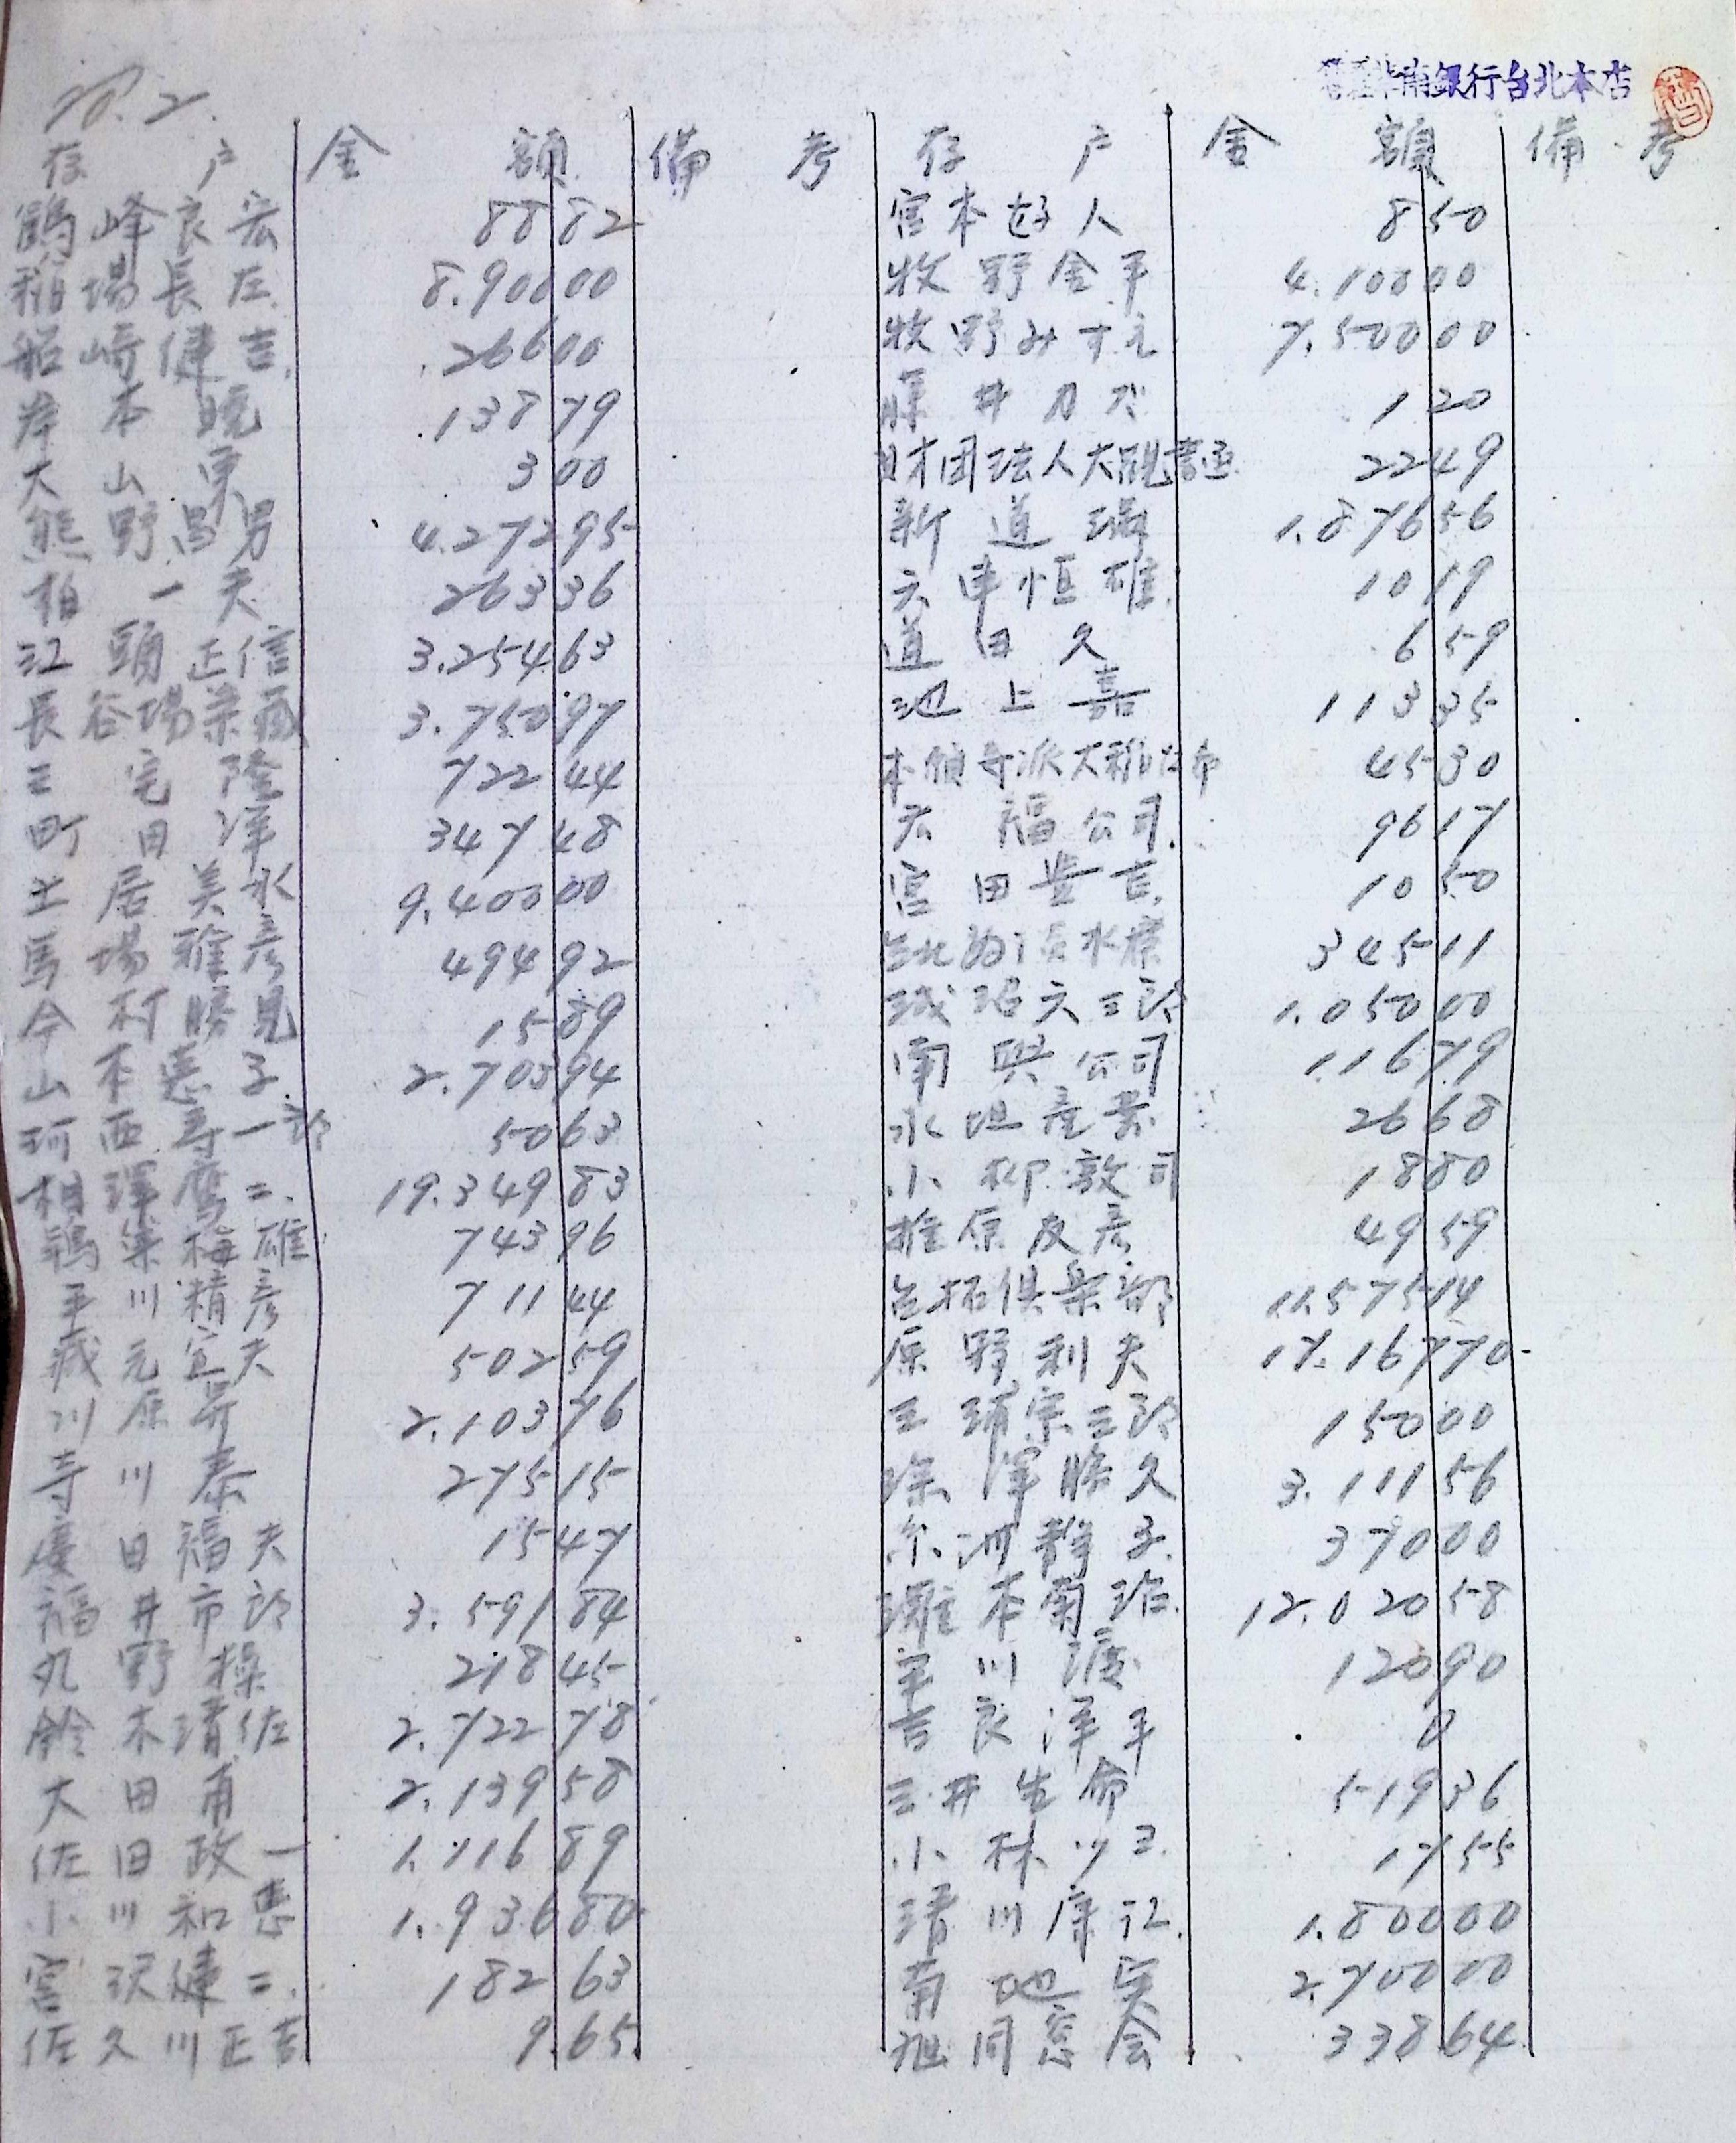 華南銀行台北本店
存户 金額 備考 存户 金額 備考
鶴峰良宏 88 82 宮本好人 8 50
稲場長左 8.900 00 牧野金平 4.100 00
船崎健吉 266 00 牧野みすえ 7.500 00
岸本暁 138 79 藤井 1 20
大山 3 00 財団法人大観書画 22 49
熊野昌男 4.272 95 新道 1.876 56
柏一夫 263 36 六車恒雄 10 19
江頭正信 3.254 63 道田久 6 59
長谷場栄蔵 3.750 97 池上嘉 113 35
三宅隆 722 44 本願寺派大 45 30
町田洋 347 48 福公司 96 17
土居美水 9.400 00 宮田豊吉 10 50
馬場雅彦 494 92 水 345 11
今村勝見 15 89 六三郎 1.050 00
山本恵子 2.703 94 南興公司 116 79
河西寿一郎 50 63 26 68
相澤鷹二 19.349 83 小柳敦司 18 80
鵜梅雄 743 96 椎原友彦 49 59
平川精彦 711 44 台拓倶楽部 11.575 14
蔵元宜夫 502 59 原野利夫 17.167 70
川原昇 2.103 76 三浦宗三郎 150 00
寺川泰 275 15 深澤勝久 3.111 56
福夫 15 47 静子 370 00
福井市郎 3.591 84 灘本菊治 12.020 58
丸野操 218 45 川渡 120 90
鈴木清佐 2.722 78 吉良澤平 0
大田甫 2.139 58 三井生命 519 36
佐田政一 1.716 89 小林 17 55
小川和恵 1.936 80 清川康江 1.800 00
宮沢健二 182 63 菊地実 2.700 00
佐久川正吉 9.65 旭同窓会 338 64